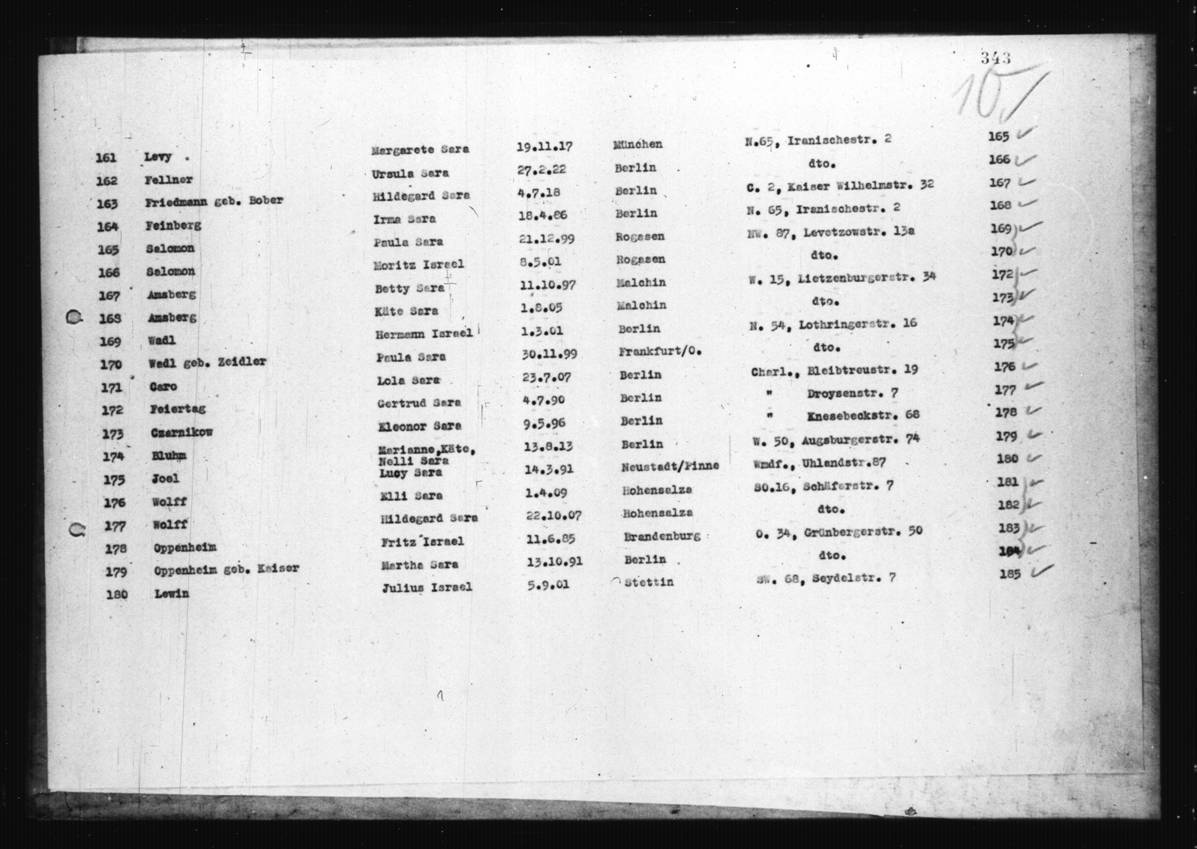 343
10
161 Levy . Margarete Sara 19.11.17 München N.65, Iranischestr. 2 165
162 Fellner Ursula Sara 27.2.22 Berlin dto. 166
163 Friedmann geb. Bober Hildegard Sara 4.7.18 Berlin C. 2, Kaiser Wilhelmstr. 32 167
164 Feinberg Irma Sara 18.4.86 Berlin N. 65, Iranischestr. 2 168
165 Salomon Paula Sara 21.12.99 Rogasen NW. 87, Levetzowstr. 13a 169
166 Salomon Moritz Israel 8.5.01 Rogasen dto. 170
167 Amsberg Betty Sara 11.10.97 Malchin W. 15, Lietzenburgerstr. 34 172
168 Amsberg Käte Sara 1.8.05 Malchin dto. 173
169 Wadl Hermann Israel 1.3.01 Berlin N. 54, Lothringerstr. 16 174
170 Wadl geb. Zeidler Paula Sara 30.11.99 Frankfurt/O. dto. 175
171 Caro Lola Sara 23.7.07 Berlin Charl., Bleibtreustr. 19 176
172 Feiertag Gertrud Sara 4.7.90 Berlin " Droysenstr. 7 177
173 Czarnikow Eleonor Sara 9.5.96 Berlin " Knesebeckstr. 68 178
174 Bluhm Marianne,Käte, 13.8.13 Berlin W. 50, Augsburgerstr. 74 179
Nelli Sara
175 Joel Lucy Sara 14.3.91 Neustadt/Pinne Wmdf., Uhlandstr.87 180
176 Wolff Elli Sara 1.4.09 Hohensalza SO.16, Schäferstr. 7 181
177 Wolff Hildegard Sara 22.10.07 Hohensalza dto. 182
178 Oppenheim Fritz Israel 11.6.85 Brandenburg O. 34, Grünbergerstr. 50 183
179 Oppenheim geb. Kaiser Martha Sara 13.10.91 Berlin dto. 184
180 Lewin Julius Israel 5.9.01 Stettin SW. 68, Seydelstr. 7 185